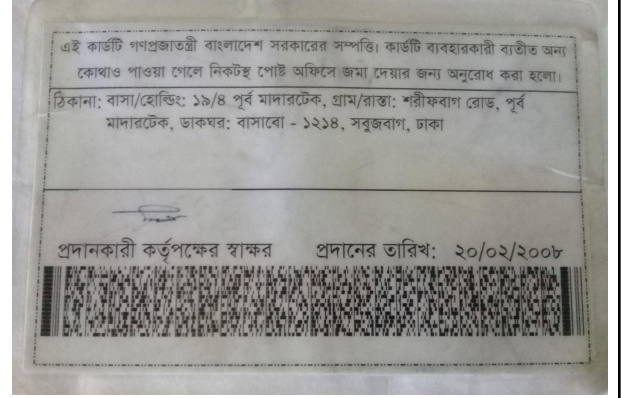 এই কার্ডটি গণপ্রজাতন্ত্রী বাংলাদেশ সরকারের সম্পত্তি। কার্ডটি ব্যবহারকারী ব্যতীত অন্য
কোথাও পাওয়া গেলে নিকটস্থ পোষ্ট অফিসে জমা দেয়ার জন্য অনুরোধ করা হলো।
ঠিকানা: বাসা/হোল্ডিং: ১৯/৪ পূর্ব মাদারটেক, গ্রাম/রাস্তা: শরীফবাগ রোড, পূর্ব
মাদারটেক, ডাকঘর: বাসাবো - ১২১৪, সবুজবাগ, ঢাকা
প্রদানকারী কর্তৃপক্ষের স্বাক্ষর প্রদানের তারিখ: ২০/০২/২০০৮